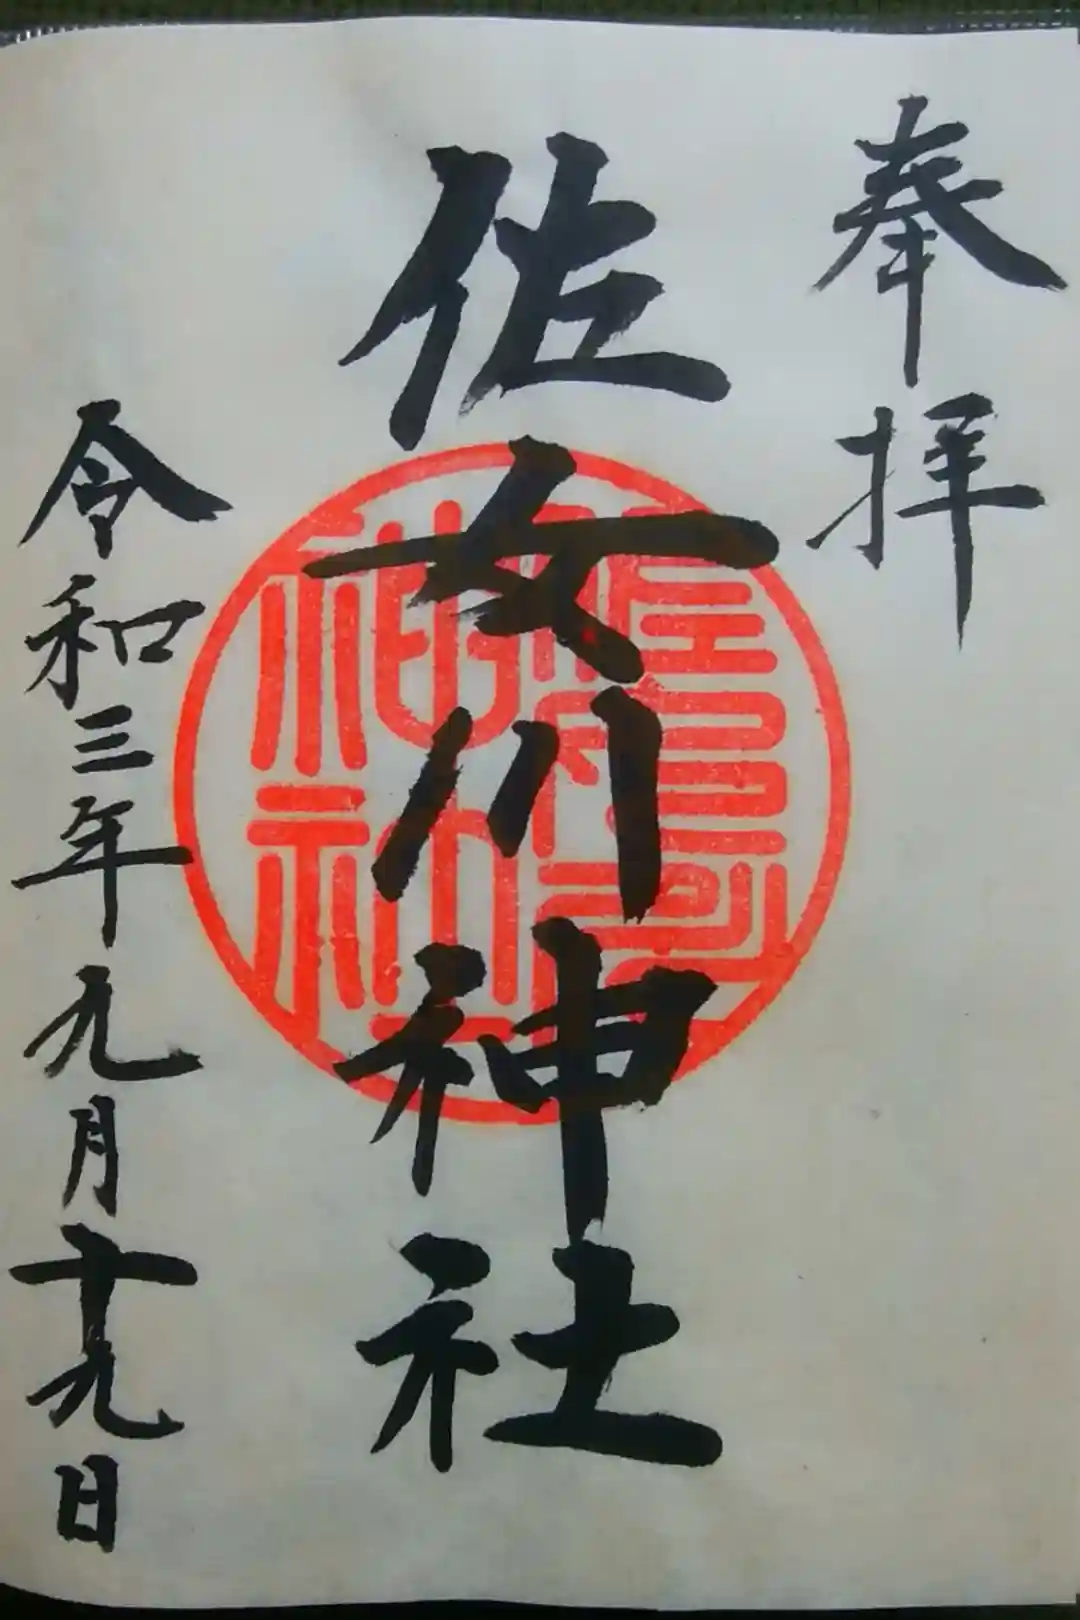 奉拝
佐女川神社
令和三年九月十九日